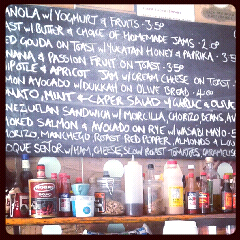 NOLA w/ YOGHURT & FRUITS · 3.50
AST w/ BUTTER & CHOICE OF HOMEMADE JAMS · 2.00
ED GOUDA ON TOAST w/ YUCATAN HONEY & PAPRIKA · 3.5
NANA & PASSION FRUIT ON TOAST · 3.50
IPOTLE & APRICOT JAM w/ CREAM CHEESE ON TOAST
MON AVOCADO w/ DUKKAH ON OLIVE BREAD · 4.00
MATO, MINT & CAPER SALAD w/ GARLIC & OLIVE
NEZUELAN SANDWICH w/ MORCILLA, CHORIZO, BEANS, AV
OKED SALMON & AVOCADO ON RYE w/ WASABI MAYO · 5
ORIZO, MANCHEGO, ROAST RED PEPPER, ALMONDS, & ROC
OQUE SEÑOR w/ HAM, CHEESE, SLOW ROAST TOMATOES, CARAMELISE